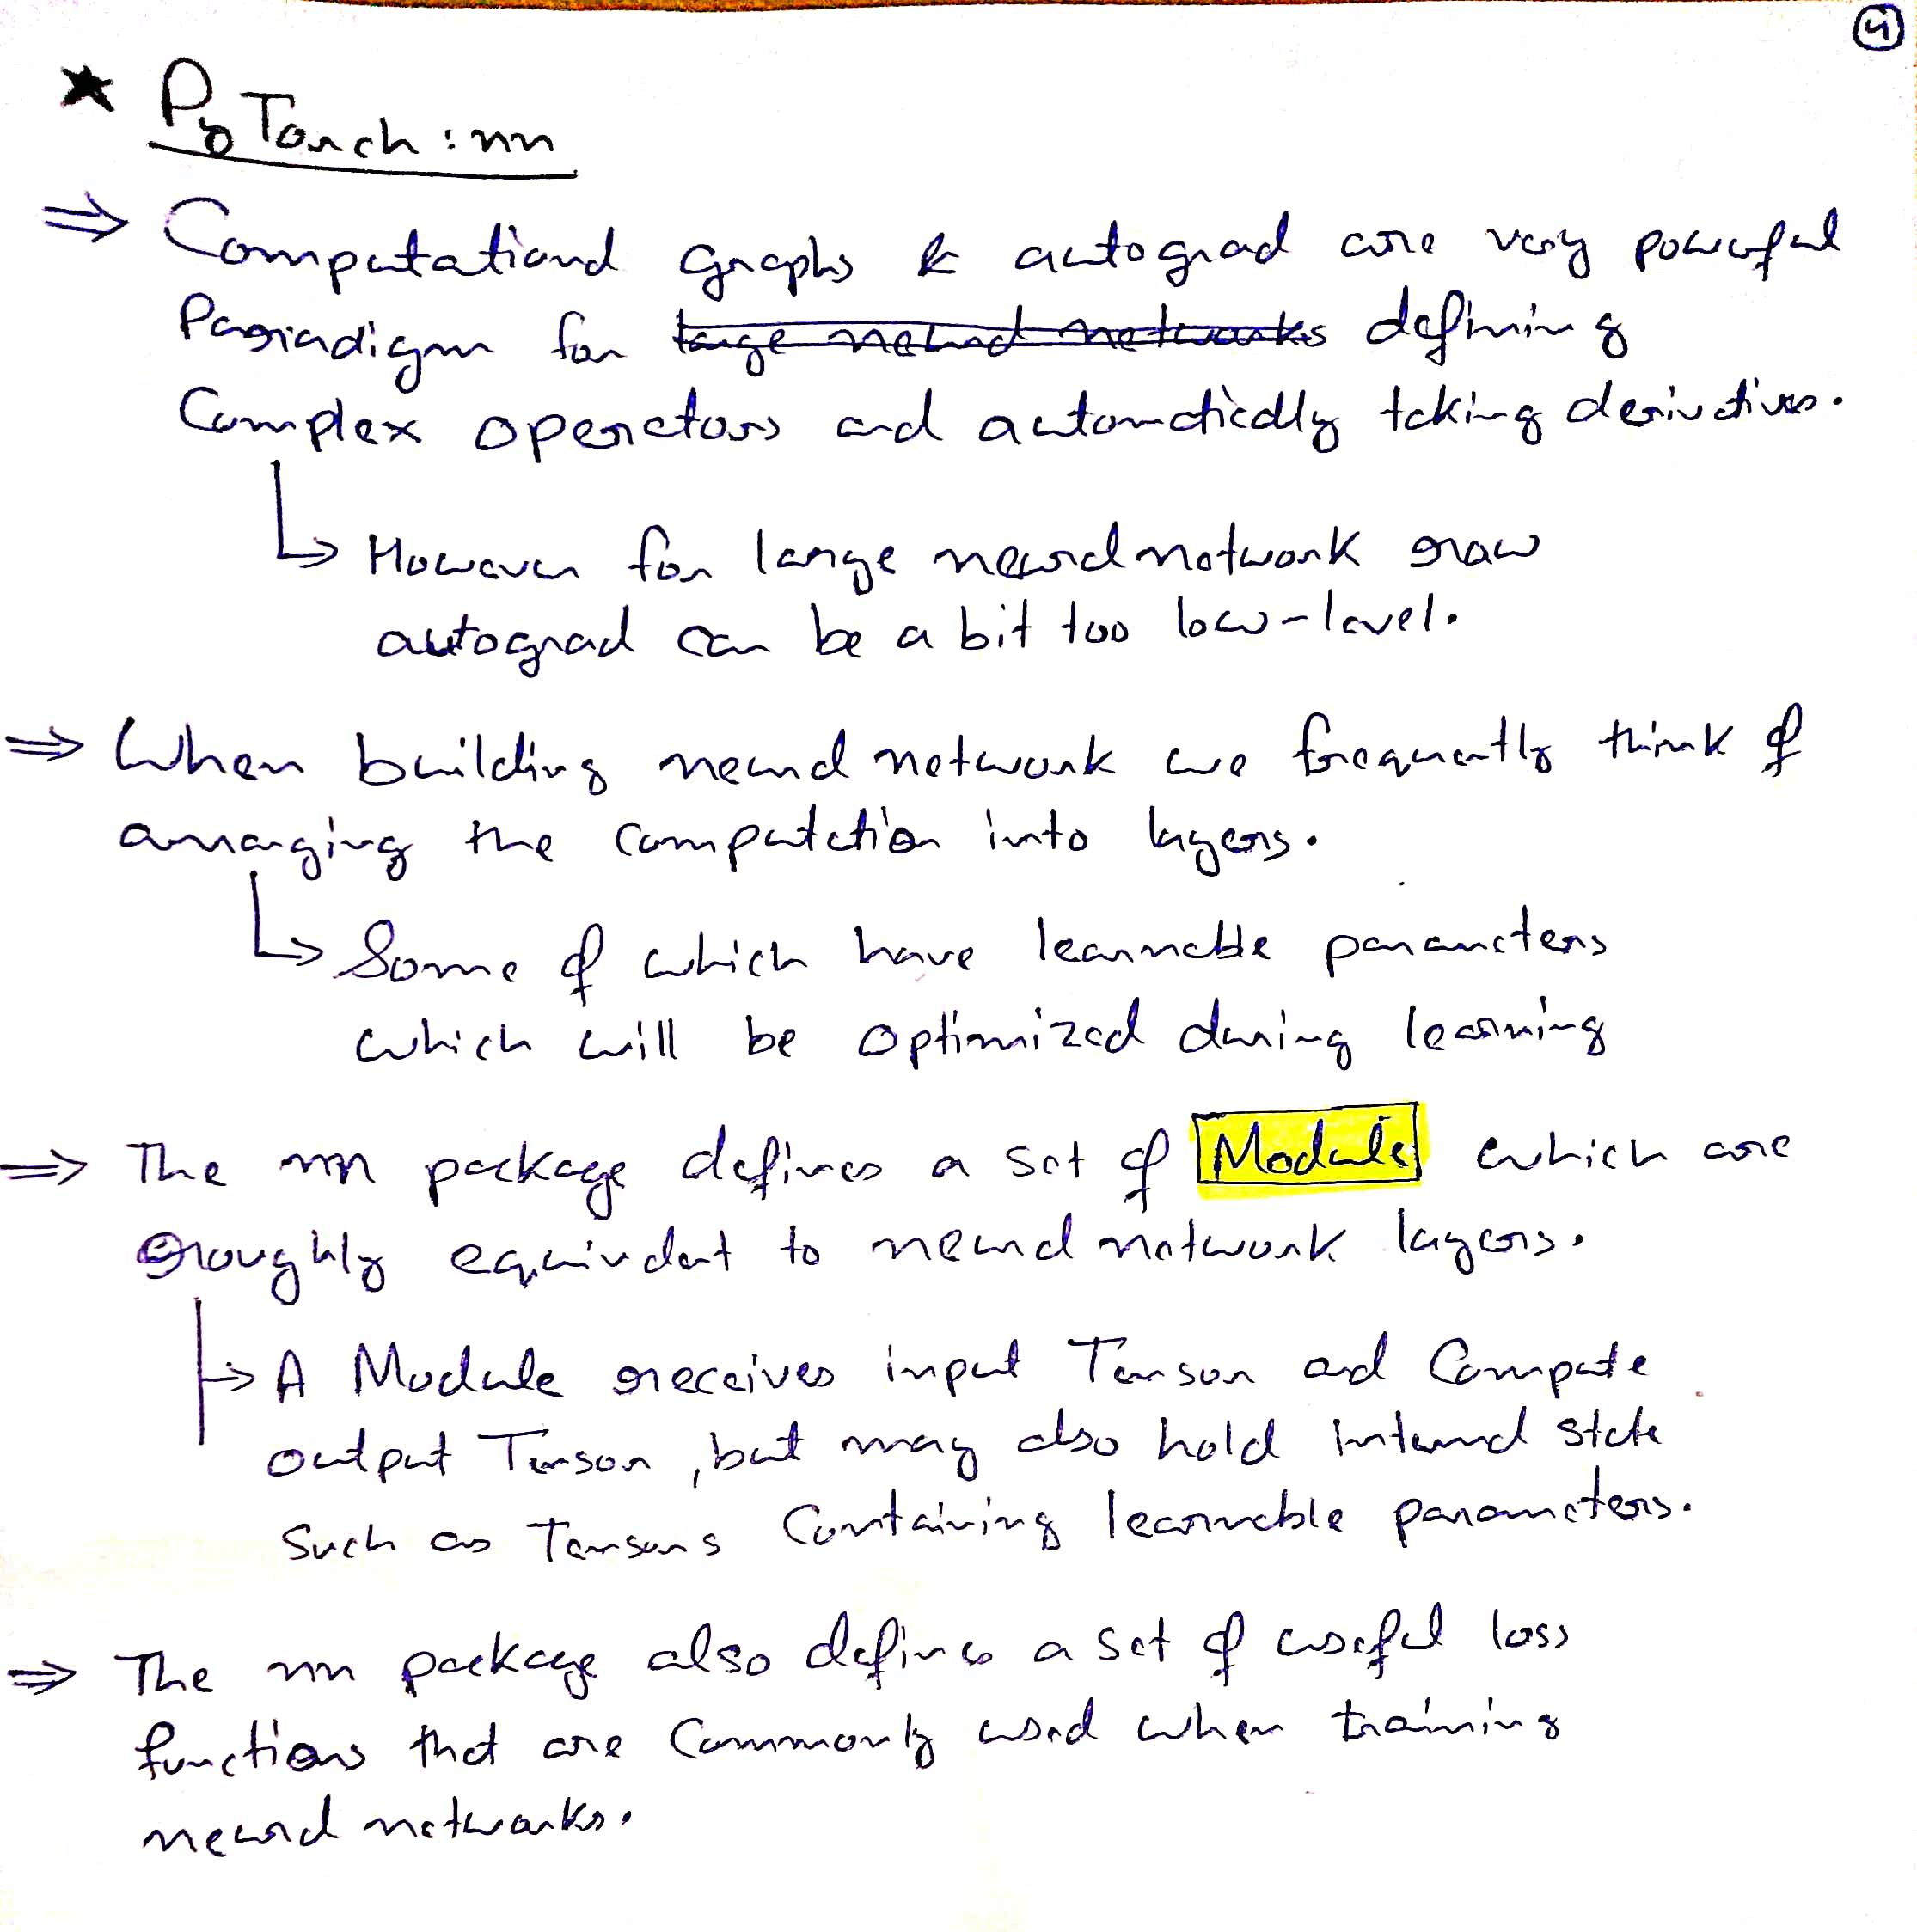 4
★ PyTorch : nn
⇒ Computational graphs & autograd are very powerful
Paradigm for ~~large neural networks~~ defining
Complex operators and automatically taking derivatives.
↳ However for large neural network raw
autograd can be a bit too low-level.
⇒ When building neural network we frequently think of
arranging the computation into layers.
↳ Some of which have learnable parameters
which will be optimized during learning
⇒ The nn package defines a set of Module which are
roughly equivalent to neural network layers.
↳ A Module receives input Tensor and Compute
output Tensor, but may also hold internal state
Such as Tensors Containing learnable parameters.
⇒ The nn package also defines a set of useful loss
functions that are Commonly used when training
neural networks.